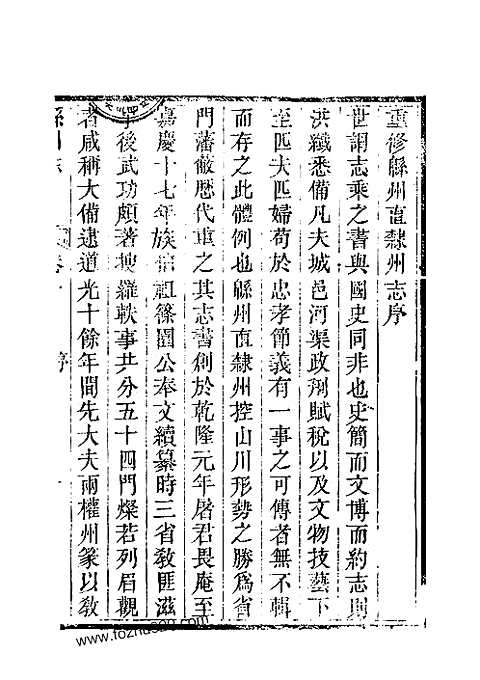 重修緜州直隸州志序
世謂志乘之書與國史同非也史簡而文博而約志則
洪纖悉備凡夫城邑河渠政刑賦稅以及文物技藝下
至匹夫匹婦苟於忠孝節義有一事之可傳者無不輯
而存之此體例也緜州直隸州控山川形勢之勝為省
門藩蔽歷代重之其志書創於乾隆元年屠君畏庵至
嘉慶十七年族伯祖篠園公奉文續纂時三省教匪滋
平後武功頗著搜羅軼事共分五十四門燦若列眉觀
者咸稱大備逮道光十餘年間先大夫兩權州篆以教
緜州志
卷
序
www.fozhu920.com